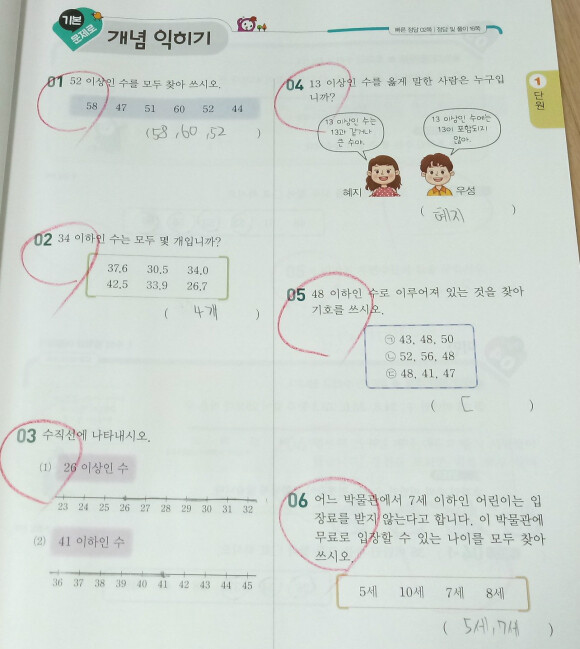 기본
문제로
개념 익히기
빠른 정답 02쪽 | 정답 및 풀이 16쪽
1
단
원
01 52 이상인 수를 모두 찾아 쓰시오.
58 47 51 60 52 44
(58, 60, 52)
02 34 이하인 수는 모두 몇 개입니까?
37.6 30.5 34.0
42.5 33.9 26.7
( 4개 )
03 수직선에 나타내시오.
(1) 26 이상인 수
23 24 25 26 27 28 29 30 31 32
(2) 41 이하인 수
36 37 38 39 40 41 42 43 44 45
04 13 이상인 수를 옳게 말한 사람은 누구입
니까?
13 이상인 수는
13과 같거나
큰 수야.
13 이상인 수에는
13이 포함되지
않아.
혜지 우성
( 혜지 )
05 48 이하인 수로 이루어져 있는 것을 찾아
기호를 쓰시오.
㉠ 43, 48, 50
㉡ 52, 56, 48
㉢ 48, 41, 47
( ㄷ )
06 어느 박물관에서 7세 이하인 어린이는 입
장료를 받지 않는다고 합니다. 이 박물관에
무료로 입장할 수 있는 나이를 모두 찾아
쓰시오.
5세 10세 7세 8세
( 5세, 7세 )